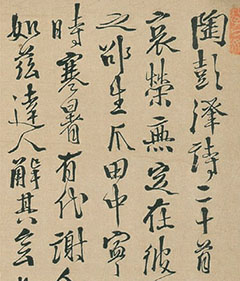 陶彭澤詩二十首
衰榮無定在彼
之邵生瓜田中寧
時寒暑有代謝人
如茲達人解其會